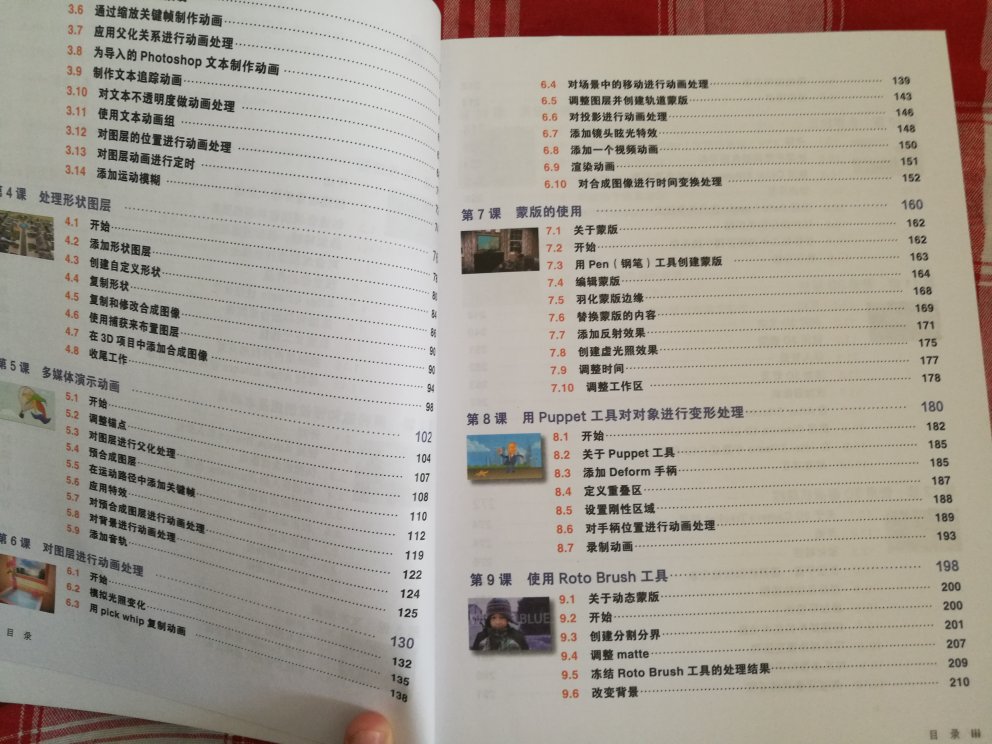 3.6 通过缩放关键帧制作动画
3.7 应用父化关系进行动画处理
3.8 为导入的 Photoshop 文本制作动画
3.9 制作文本追踪动画
3.10 对文本不透明度做动画处理
3.11 使用文本动画组
3.12 对图层的位置进行动画处理
3.13 对图层动画进行定时
3.14 添加运动模糊
第 4 课 处理形状图层 76
4.1 开始 78
4.2 添加形状图层 80
4.3 创建自定义形状 84
4.4 复制形状 86
4.5 复制和修改合成图像 90
4.6 使用捕获来布置图层 90
4.7 在 3D 项目中添加合成图像 94
4.8 收尾工作 98
第 5 课 多媒体演示动画 102
5.1 开始 104
5.2 调整锚点 107
5.3 对图层进行父化处理 108
5.4 预合成图层 110
5.5 在运动路径中添加关键帧 112
5.6 应用特效 119
5.7 对预合成图层进行动画处理 122
5.8 对背景进行动画处理 124
5.9 添加音轨 125
第 6 课 对图层进行动画处理 130
6.1 开始 132
6.2 模拟光照变化 135
6.3 用 pick whip 复制动画 138
目 录
6.4 对场景中的移动进行动画处理 139
6.5 调整图层并创建轨道蒙版 143
6.6 对投影进行动画处理 146
6.7 添加镜头眩光特效 148
6.8 添加一个视频动画 150
6.9 渲染动画 151
6.10 对合成图像进行时间变换处理 152
第 7 课 蒙版的使用 160
7.1 关于蒙版 162
7.2 开始 162
7.3 用 Pen（钢笔）工具创建蒙版 163
7.4 编辑蒙版 164
7.5 羽化蒙版边缘 168
7.6 替换蒙版的内容 169
7.7 添加反射效果 171
7.8 创建虚光照效果 175
7.9 调整时间 177
7.10 调整工作区 178
第 8 课 用 Puppet 工具对对象进行变形处理 180
8.1 开始 182
8.2 关于 Puppet 工具 185
8.3 添加 Deform 手柄 185
8.4 定义重叠区 187
8.5 设置刚性区域 188
8.6 对手柄位置进行动画处理 189
8.7 录制动画 193
第 9 课 使用 Roto Brush 工具 198
BLUE
9.1 关于动态蒙版 200
9.2 开始 200
9.3 创建分割分界 201
9.4 调整 matte 207
9.5 冻结 Roto Brush 工具的处理结果 209
9.6 改变背景 210
目 录 iii